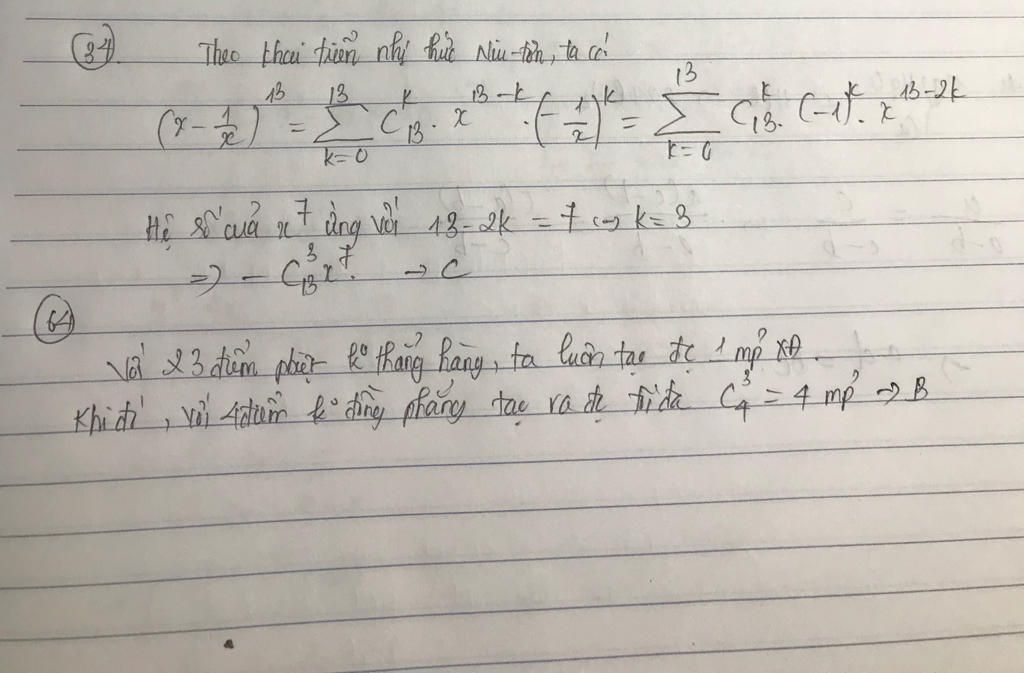 (34). Theo khai triển nhị thức Niu-tơn, ta có:
(x - 1/x)^13 = ∑_{k=0}^{13} C_13^k . x^{13-k} . (-1/x)^k = ∑_{k=0}^{13} C_13^k . (-1)^k . x^{13-2k}
Hệ số của x^7 ứng với 13-2k = 7 ↔ k = 3
=> - C_13^3 x^7. → C
(64)
Với 3 điểm pbiệt k° thẳng hàng, ta luôn tạo đc 1 mp XĐ.
Khi đó, với 4 điểm k° đồng phẳng tạo ra đc tối đa C_4^3 = 4 mp → B